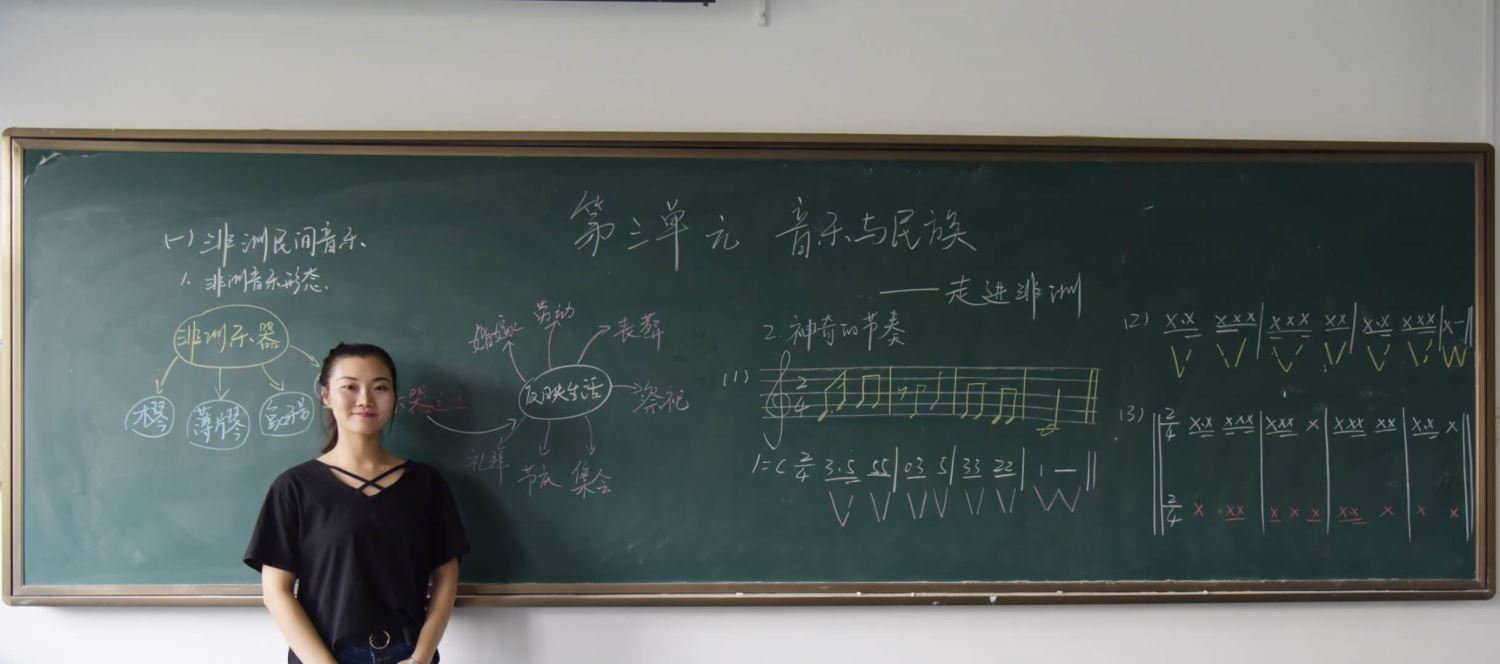 第三单元 音乐与民族
——走进非洲
(一)非洲民间音乐.
1. 非洲音乐形态.
非洲乐器
木琴
薄片琴
反映生活
婚嫁
劳动
丧葬
祭祀
集会
节庆
礼拜
2. 神奇的节奏
(1)
2/4
1=C 2/4 3.5 55 | 03 5 | 33 22 | 1 — ||
(2) X.X XXX | XXX XX | X.X XXX | X — ||
(3) 2/4 X.X XXX | XXX X | XXX XX | X.X X ||
2/4 X XX | X X X | X.X X | X X ||